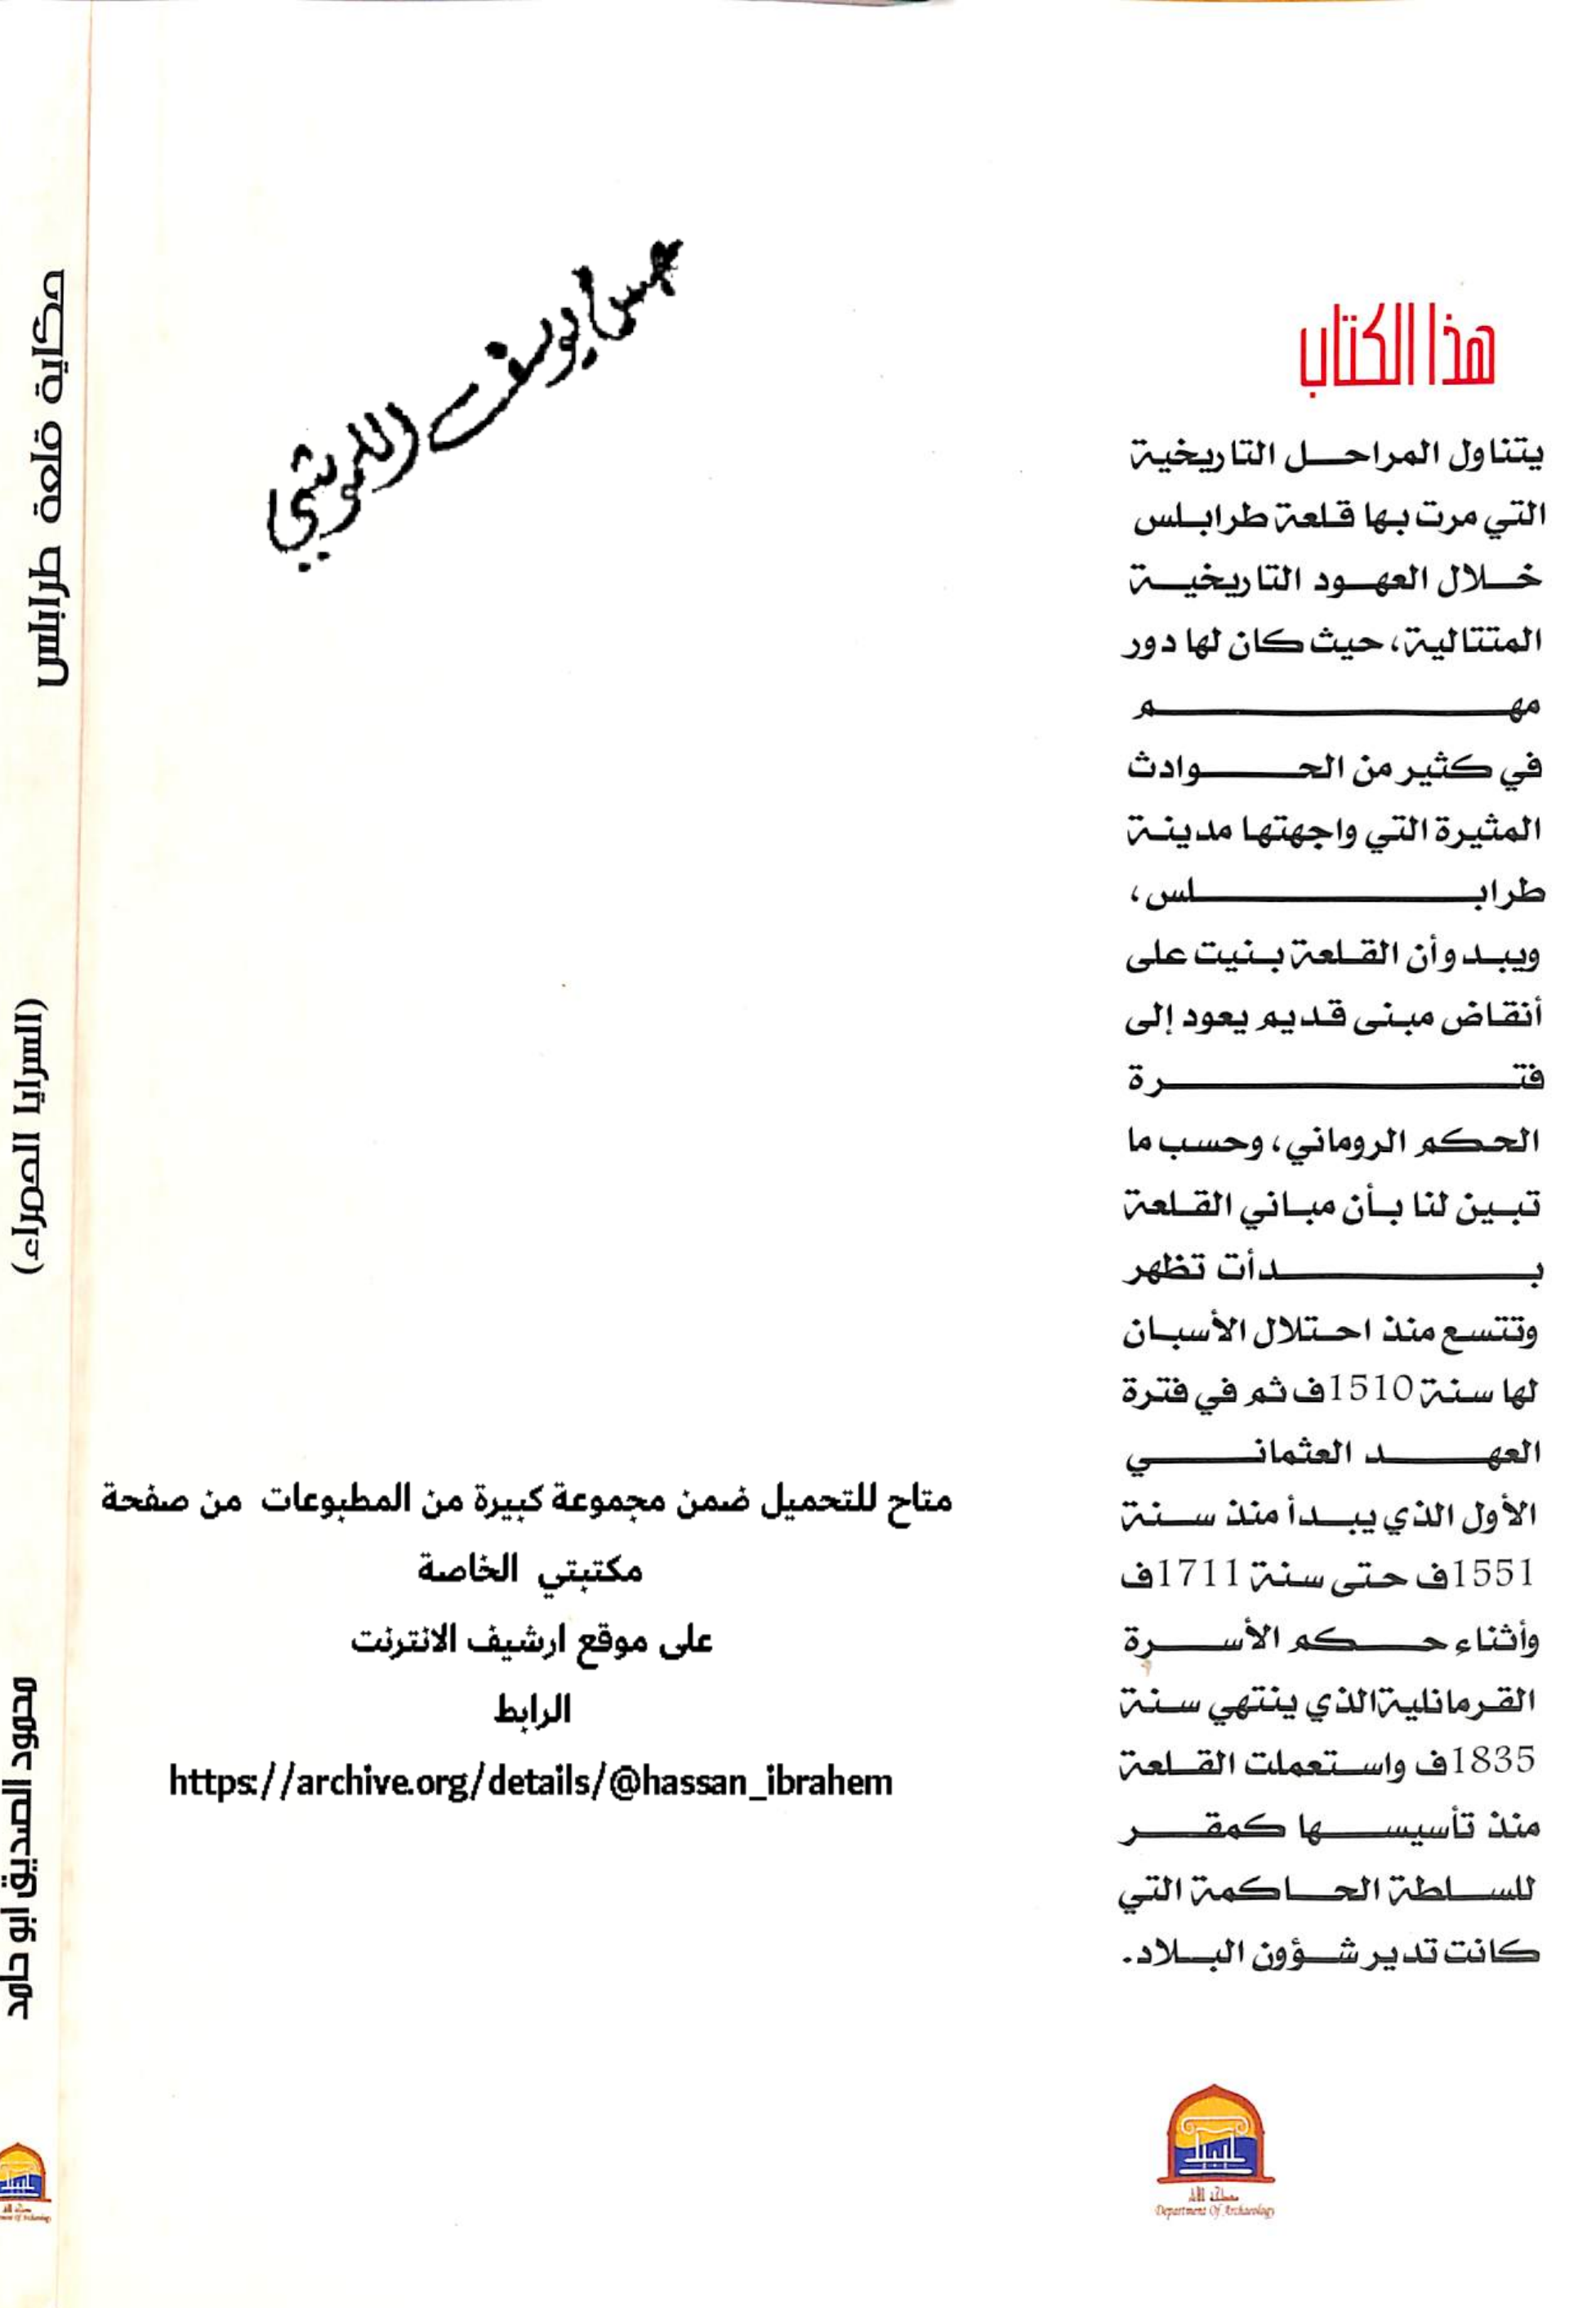 هذا الكتاب
يتناول المراحل التاريخية
التي مرت بها قلعة طرابلس
خلال العهود التاريخية
المتتالية، حيث كان لها دور
مهم
في كثير من الحوادث
المثيرة التي واجهتها مدينة
طرابلس،
ويبدو أن القلعة بنيت على
أنقاض مبنى قديم يعود إلى
فترة
الحكم الروماني، وحسب ما
تبين لنا بأن مباني القلعة
بدأت تظهر
وتتسع منذ احتلال الأسبان
لها سنة 1510ف ثم في فترة
العهد العثماني
الأول الذي يبدأ منذ سنة
1551ف حتى سنة 1711ف
وأثناء حكم الأسرة
القرمانلية الذي ينتهي سنة
1835ف واستعملت القلعة
منذ تأسيسها كمقر
للسلطة الحاكمة التي
كانت تدير شؤون البلاد.
Department Of Archaeology
يوسف
متاح للتحميل ضمن مجموعة كبيرة من المطبوعات من صفحة
مكتبتي الخاصة
على موقع ارشيف الانترنت
الرابط
https://archive.org/details/@hassan_ibrahem
حكاية قلعة طرابلس
(السرايا الحمراء)
محمود الصديق ابو حامد